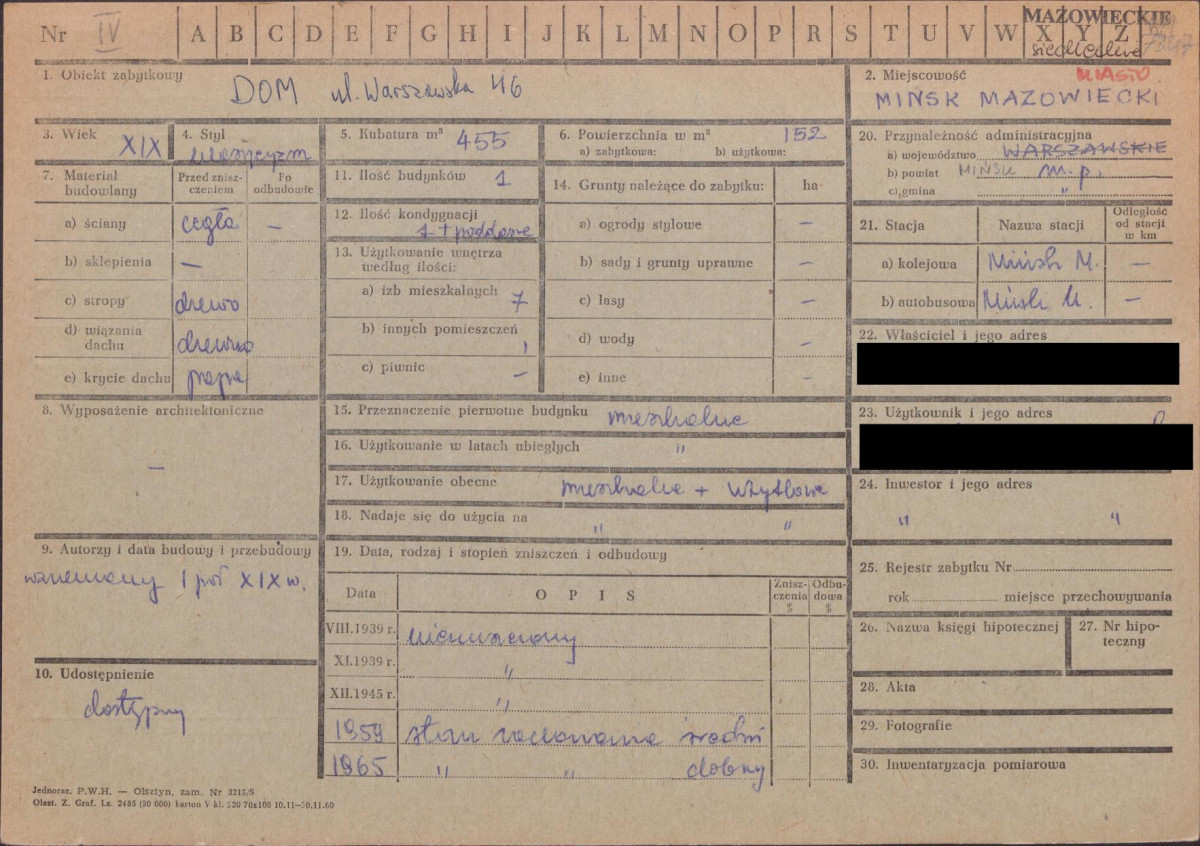 Nr IV A B C D E F G H I J K L M N O P R S T U V W X Y Z
MAZOWIECKIE
siedleckie
1. Obiekt zabytkowy
DOM ul. Warszawska 46
2. Miejscowość MIASTO
MIŃSK MAZOWIECKI
3. Wiek XIX
4. Styl klasycyzm
5. Kubatura m³ 455
6. Powierzchnia w m² 152
a) zabytkowa: b) użytkowa:
20. Przynależność administracyjna
a) województwo WARSZAWSKIE
b) powiat MIŃSK m.p.
c) gmina "
7. Materiał budowlany
Przed zniszczeniem
Po odbudowie
a) ściany cegła –
b) sklepienia –
c) stropy drewo
d) wiązania dachu drewno
e) krycie dachu papa
11. Ilość budynków 1
12. Ilość kondygnacji
1 + poddasze
13. Użytkowanie wnętrza według ilości:
a) izb mieszkalnych 7
b) innych pomieszczeń
c) piwnic –
14. Grunty należące do zabytku: ha
a) ogrody stylowe –
b) sady i grunty uprawne –
c) lasy –
d) wody –
e) inne –
21. Stacja Nazwa stacji Odległość od stacji w km
a) kolejowa Mińsk M. –
b) autobusowa Mińsk M. –
22. Właściciel i jego adres
23. Użytkownik i jego adres
8. Wyposażenie architektoniczne
–
15. Przeznaczenie pierwotne budynku mieszkalne
16. Użytkowanie w latach ubiegłych "
17. Użytkowanie obecne mieszkalne + użytkowe
18. Nadaje się do użycia na " "
24. Inwestor i jego adres
" "
9. Autorzy i data budowy i przebudowy
wzniesiony I poł XIX w.
19. Data, rodzaj i stopień zniszczeń i odbudowy
Data OPIS Zniszczenia % Odbudowa %
VIII.1939 r. nienaruszony
XI.1939 r. "
XII.1945 r. "
1959 stan zachowania średni
1965 " " dobry
25. Rejestr zabytku Nr
rok miejsce przechowywania
26. Nazwa księgi hipotecznej
27. Nr hipoteczny
10. Udostępnienie
dostępny
28. Akta
29. Fotografie
30. Inwentaryzacja pomiarowa
Jednoraz. P.W.H. — Olsztyn, zam. Nr 3215/S
Olszt. Z. Graf. Lz. 2485 (30 000) karton V kl. 220 70x100 10.11—30.11.60